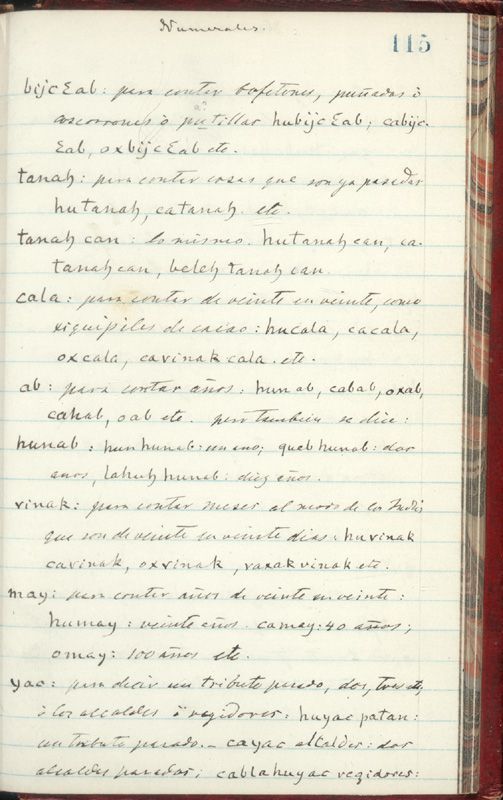 Numerales.
115
bijcƐab: para contar bofetones, puñadas ò
coscorrones ò patillas hubijcƐab; cabijc-
Ɛab, oxbijcƐab etc.
tanaḥ: para contar cosas que son ya pasadas
hutanaḥ, catanaḥ. etc.
tanaḥ can: lo mismo. hutanaḥ can, ca-
tanaḥ can, beleḥ tanaḥ can.
cala: para contar de veinte en veinte, como
xiquipiles de cacao: hucala, cacala,
oxcala, cavinak cala. etc.
ab: para contar años: hun ab, cabab, oxab,
cahab, oab etc. pero tambien se dice:
hunab: hun hunab: un ano; queb hunab: dos
anos, lahuḥ hunab: diez años.
vinak: para contar meses al modo de los Indios
que son de veinte en veinte dias: huvinak
cavinak, oxvinak, vaxakvinak etc.
may: para contar años de veinte en veinte:
humay: veinte años. camay: 40 años;
omay: 100 años etc.
yac: para decir un tributo pasado, dos, tres etc,
ò los alcaldes ò regidores: huyac patan:
un tributo pasado. _ cayac alcaldes: dos
alcaldes pasados; cablahuyac regidores: